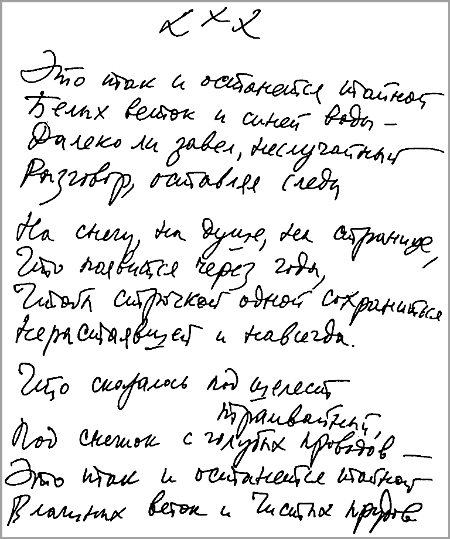 х х х
Это так и останется тайной
Белых веток и синей воды –
Далеко ли завел, неслучайный
Разговор, оставляя следы
На снегу, на душе, на странице,
Что появится через годы,
Чтоб строчкой одной сохраниться
Нерастаявшей и навсегда.
Что сказалось под шелест
трамвайный,
Под снежок с голубых проводов –
Это так и останется тайной
Влажных веток и Чистых прудов